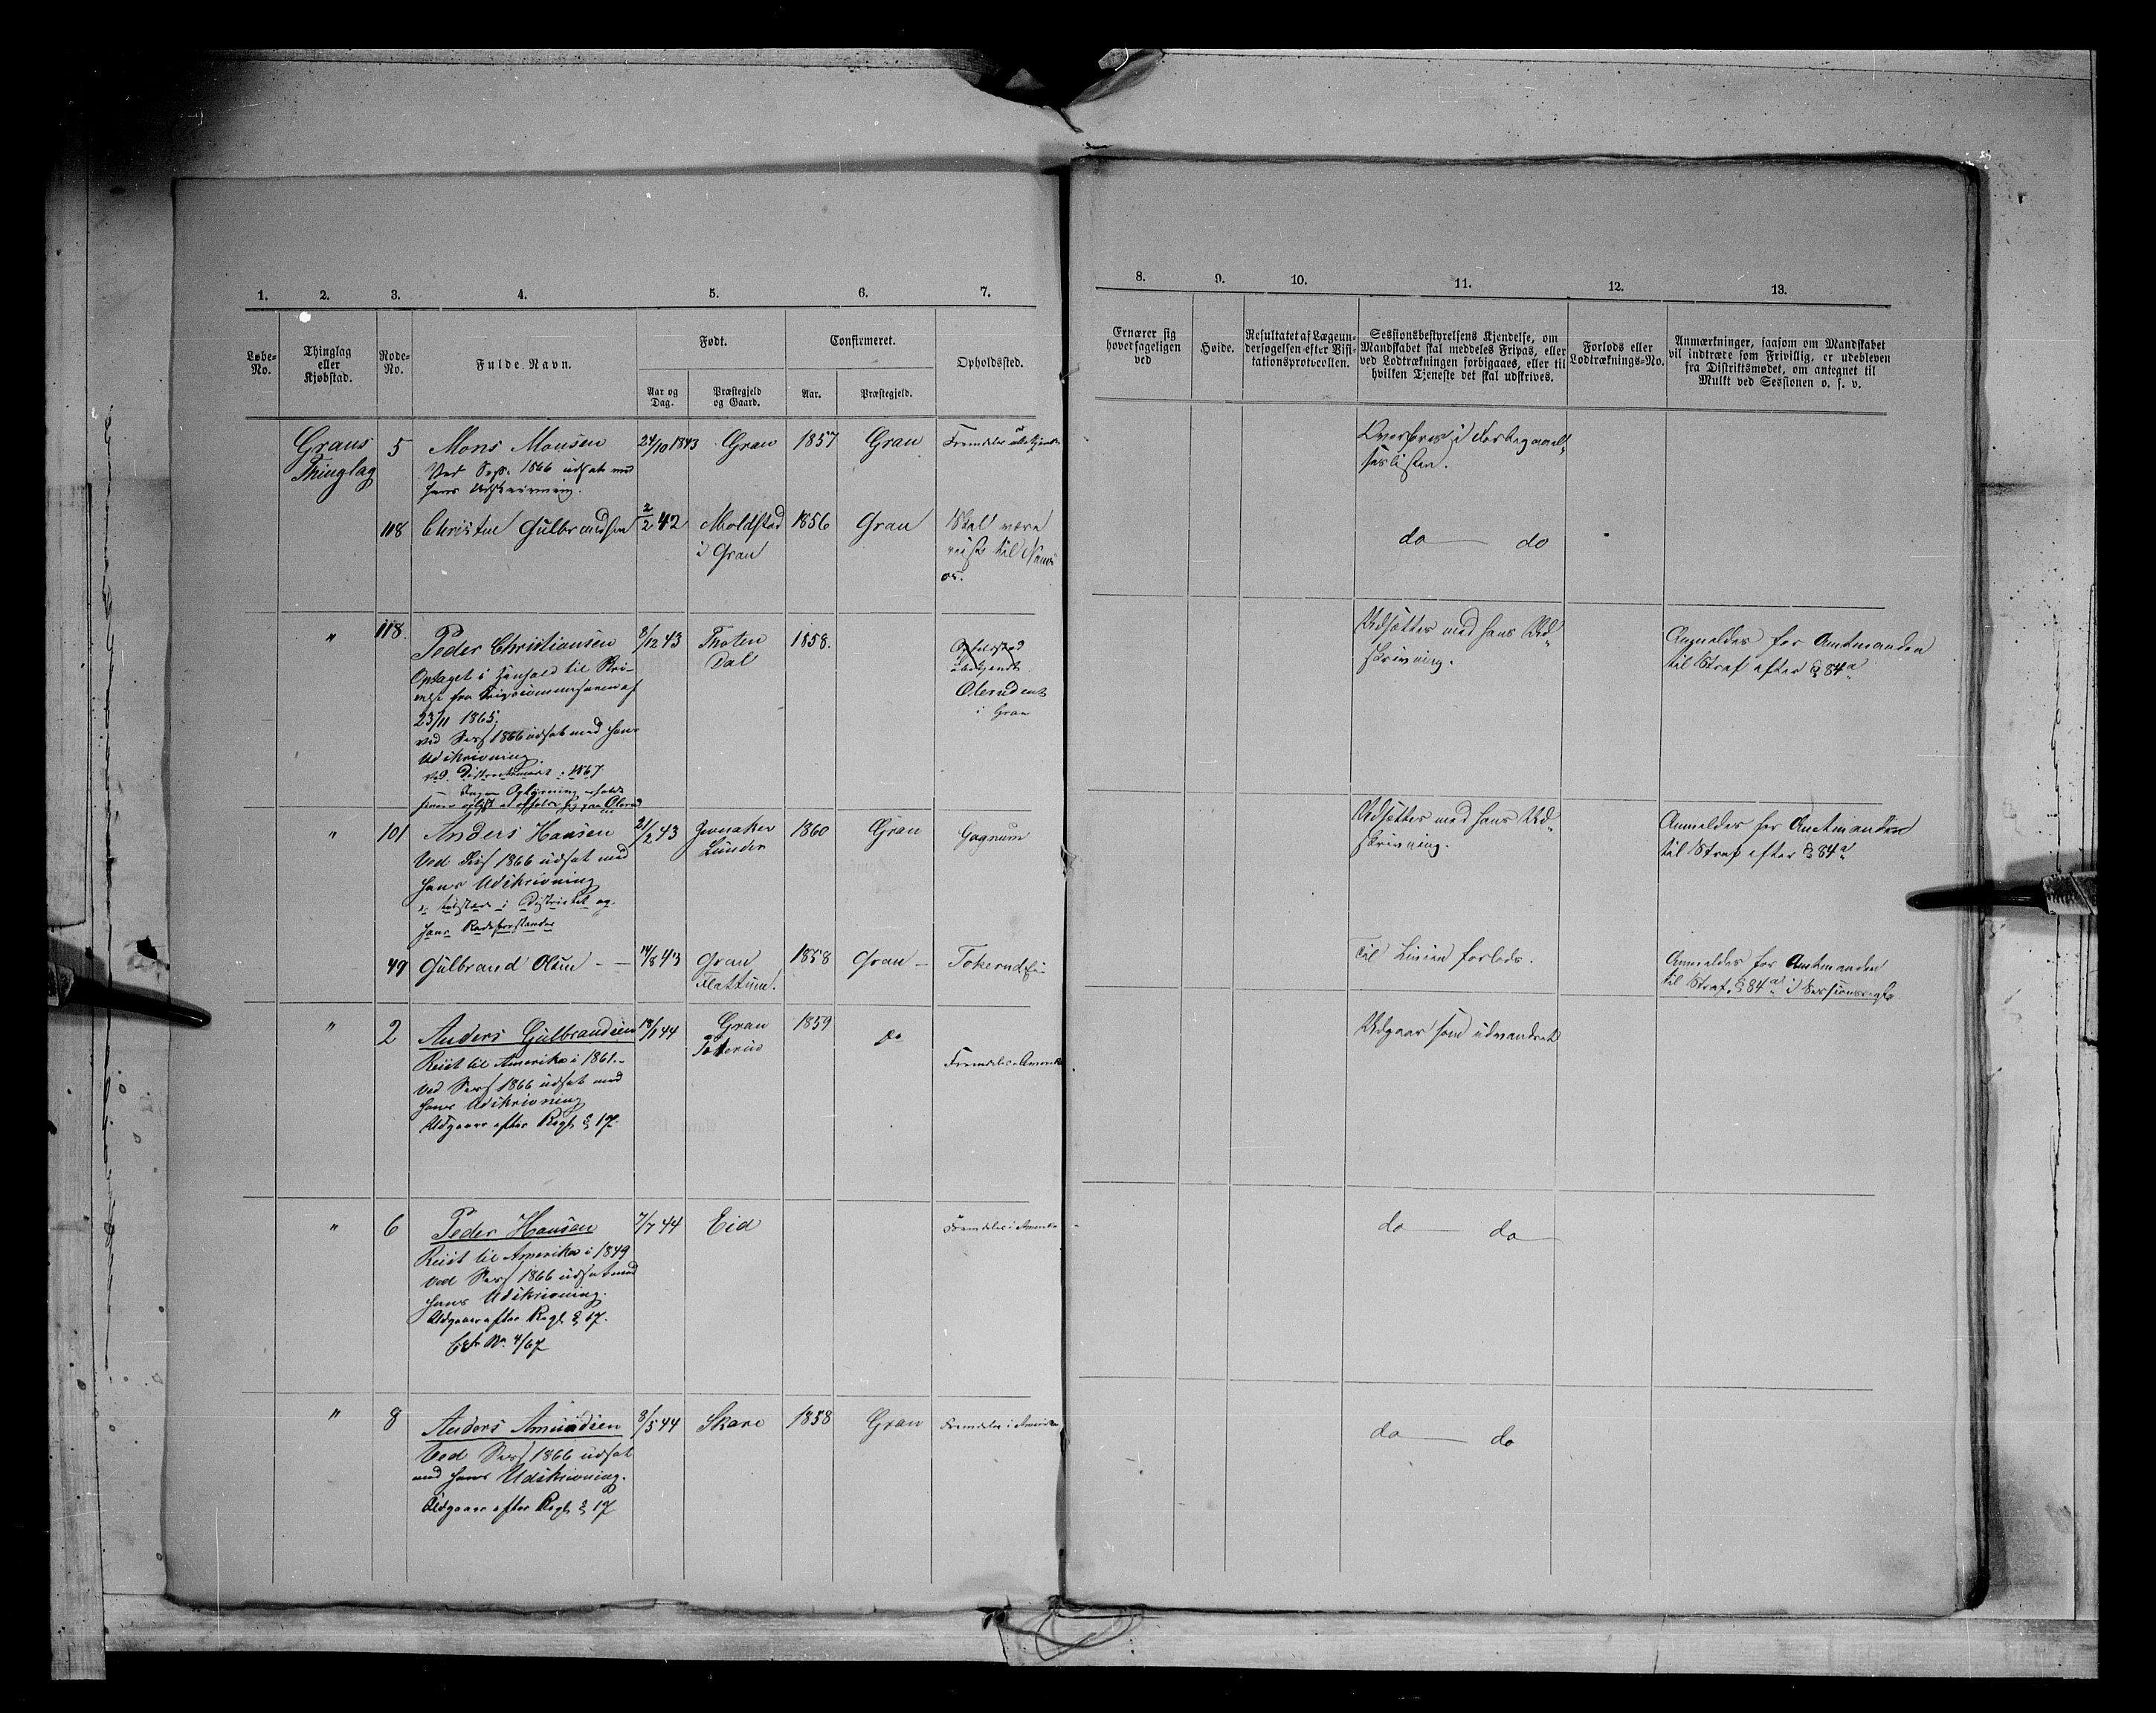 1. 2. 3. 4. 5. 6. 7.
Løbe-No.
Thinglag eller Kjøbstad.
Rode-No.
Fulde Navn.
Født.
Aar og Dag.
Præstegjeld og Gaard.
Confirmeret.
Aar.
Præstegjeld.
Opholdssted.
Grans Thinglag 5 Mons Monsen 24/10 1843 Gran 1857 Gran Fremdeles ubekjendt
Ved Sess. 1866 udsat med
hans Udskrivning.
118 Christen Gulbrandsen 2/2 42 Moldstad 1856 Gran Skal være
i Gran
reist til
os.
" 118. Peder Christiansen 8/12 43 Thoten 1858. Opholdssted
Dal ubekjendt
Optaget i Henhold til Skri-
velse fra
Olerudent
23/11 1865. i Gran
ved Sess 1866 udsat med hans
Udskrivning.
ved
" 101 Anders Hansen 21/2 43 Jevnaker 1860 Gran Gagnum
Lunder
Ved Sess 1866 udsat med
hans Udskrivning
i Distriktet og
hans Rodeforstander
49 Gulbrand Olsen - — 14/8 43 Gran 1858 Gran -
Flattum.
" 2 Anders Gulbrandsen 18/1 44 Gran 1859 do
Reist til Amerika i 1861.- Fremdeles i Amerika
Ved Sess 1866 udsat med
hans Udskrivning
Udgaar efter Regl. § 17.
" 6 Peder Hansen 7/7 44 Eid Fremdeles i Amerika
Reist til Amerika i 1849
Ved Sess 1866 udsat med
hans Udskrivning.
Udgaar efter Regl. § 17.
4/67
" 8 Anders Amundsen 8/5 44 Skare 1858 Gran Fremdeles i Amerika
Ved Sess 1866 udsat
med hans Udskrivning.
Udgaar efter Regl. § 17
8. 9. 10. 11. 12. 13.
Ernærer sig hovedsageligen ved
Høide.
Resultatet af Lægeun-
dersøgelsen efter Visi-
tationsprotocollen.
Sessionsbestyrelsens Kjendelse, om
Mandskabet skal meddeles Fripas, eller
ved Lodtrækningen forbigaaes, eller til
hvilken Tjeneste det skal udskrives.
Forlods eller
Lodtræknings-No.
Anmærkninger, saasom om Mandskabet
vil indtræde som Frivillig, er udebleven
fra Distriktsmødet, om antegnet til
Mulkt ved Sessionen o. s. v.
Overføres i Forbigaael-
seslisten.
do — do
Udsættes med hans Ud-
skrivning.
Anmeldes for Amtmanden
til Straf efter § 84 a
Udsættes med hans Ud-
skrivning.
Anmeldes for Amtmanden
til Straf efter § 84 a
Til Linien forlods.
Anmeldes for Amtmanden
til Straf. § 84 a i
Udgaar som udvandret
do — do
do — do